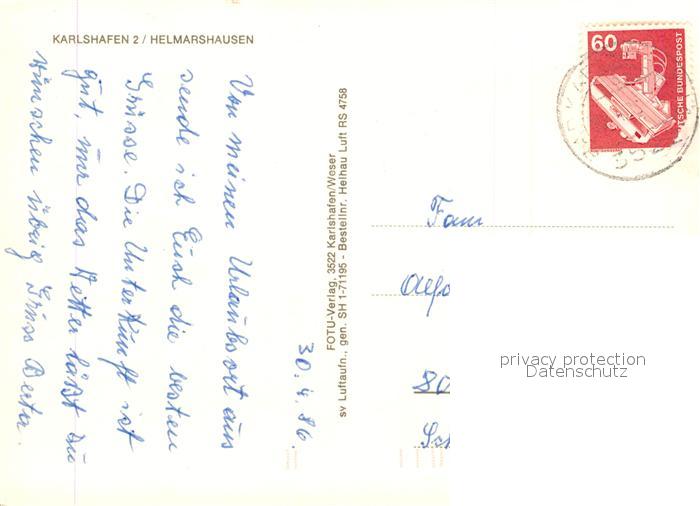 KARLSHAFEN 2 / HELMARSHAUSEN
30.4.86.
Von meinen Urlaubsort aus
sende ich Euch die besten
Grüsse. Die Unterkunft ist
gut, nur das Wetter läßt zu
wünschen übrig Gruss Berta.
FOTU-Verlag, 3522 Karlshafen/Weser
sv Luftaufn., gen. SH 1-71195 - Bestellnr. Helhau Luft RS 4758
60
DEUTSCHE BUNDESPOST
Fam
80
privacy protection
Datenschutz